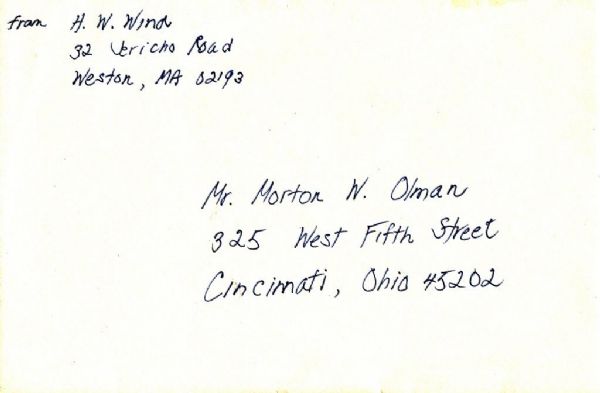 from H. W. Wind
32 Jericho Road
Weston, MA 02193
Mr. Morton W. Olman
325 West Fifth Street
Cincinnati, Ohio 45202